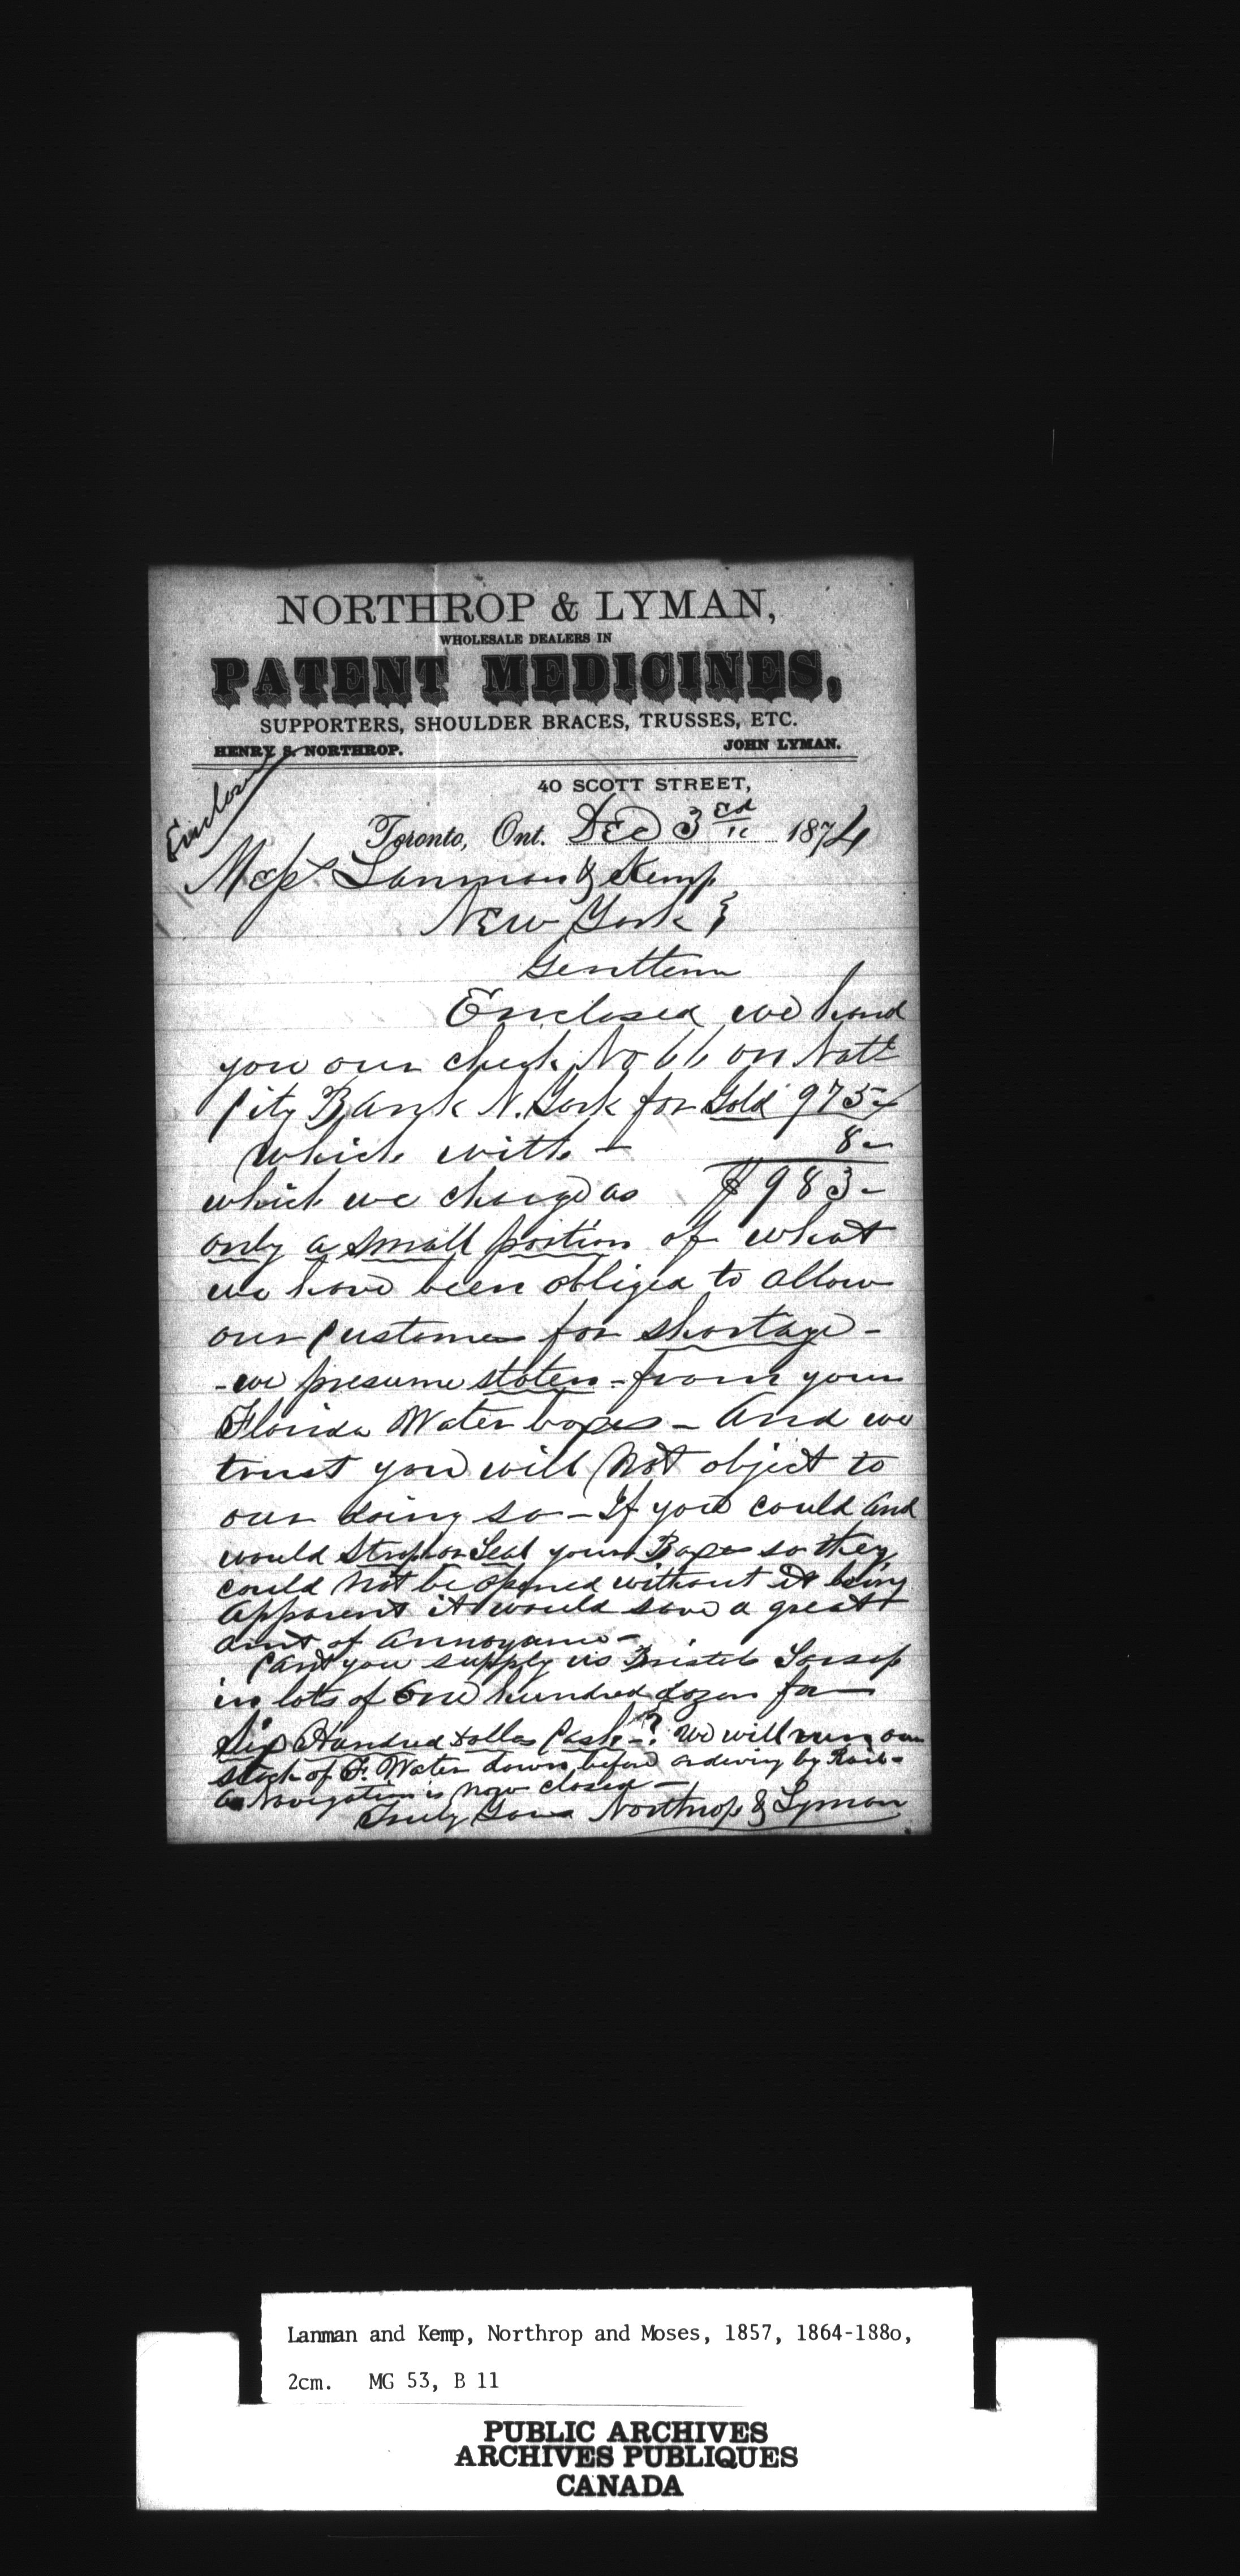 NORTHROP & LYMAN,
WHOLESALE DEALERS IN
PATENT MEDICINES,
SUPPORTERS, SHOULDER BRACES, TRUSSES, ETC.
HENRY S. NORTHROP. JOHN LYMAN.
40 SCOTT STREET,
Toronto, Ont. Dec 3rd 1874
Lanman & Kemp
New York
Enclosed we hand
you our check No 66 on Natl
City Bank N. York for Gold 975-
which with - 8-
which we charge as $983-
only a small portion of what
we have been obliged to allow
our customers for shortage -
- we presume stolen - from your
Florida Water boxes - And we
trust you will not object to
our doing so - If you could and
would Strap or Seal your Boxes so they
could not be opened without it being
apparent it would save a great
amt of annoyance -
Cant you supply us Bristols Sarsap
in lots of One hundred dozen for
Six Hundred dollars Cash - ? We will run our
stock of F. Water down before ordering by Rail -
as Navigation is now closed -
Truly Yours Northrop & Lyman
Lanman and Kemp, Northrop and Moses, 1857, 1864-188o,
2cm. MG 53, B 11
PUBLIC ARCHIVES
ARCHIVES PUBLIQUES
CANADA